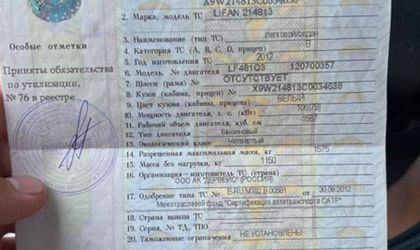 X9W214813C0034638
2. Марка, модель ТС LIFAN 214813
Особые отметки
3. Наименование (тип ТС) легковой седан
4. Категория ТС (A, B, C, D, прицеп) B
5. Год изготовления ТС 2012
Приняты обязательства
6. Модель, № двигателя LF481Q3 120700357
по утилизации,
7. Шасси (рама) № ОТСУТСТВУЕТ
№ 76 в реестре
8. Кузов (кабина, прицеп) № X9W214813C0034638
9. Цвет кузова (кабины, прицепа) БЕЛЫЙ
10. Мощность двигателя, л. с. (кВт)
11. Рабочий объем двигателя, куб. см 1587
12. Тип двигателя Бензиновый
13. Экологический класс Четвертый
14. Разрешенная максимальная масса, кг 1575
15. Масса без нагрузки, кг 1150
16. Организация - изготовитель ТС (страна)
ООО АК "ДЕРВЕЙС" (РОССИЯ)
17. Одобрение типа ТС № E-RU.MT02.B.00561 от 30.08.2012
Межотраслевой фонд "Сертификация автотранспорта САТР"
18. Страна вывоза ТС
19. Серия, № ТД, ТПО
20. Таможенные ограничения НЕ УСТАНОВЛЕНЫ